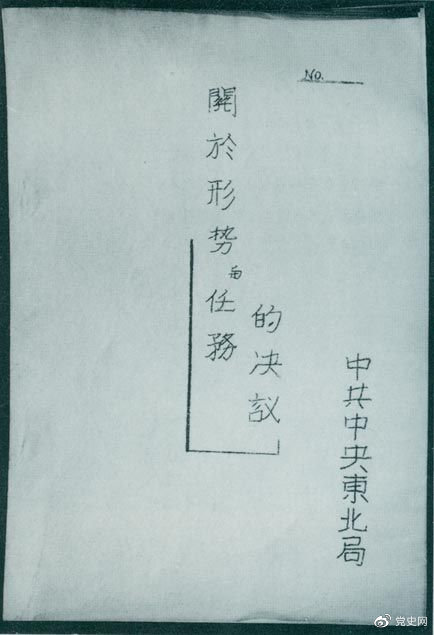 No.
關於形势与任務
的决议
中共中央東北局
党史网